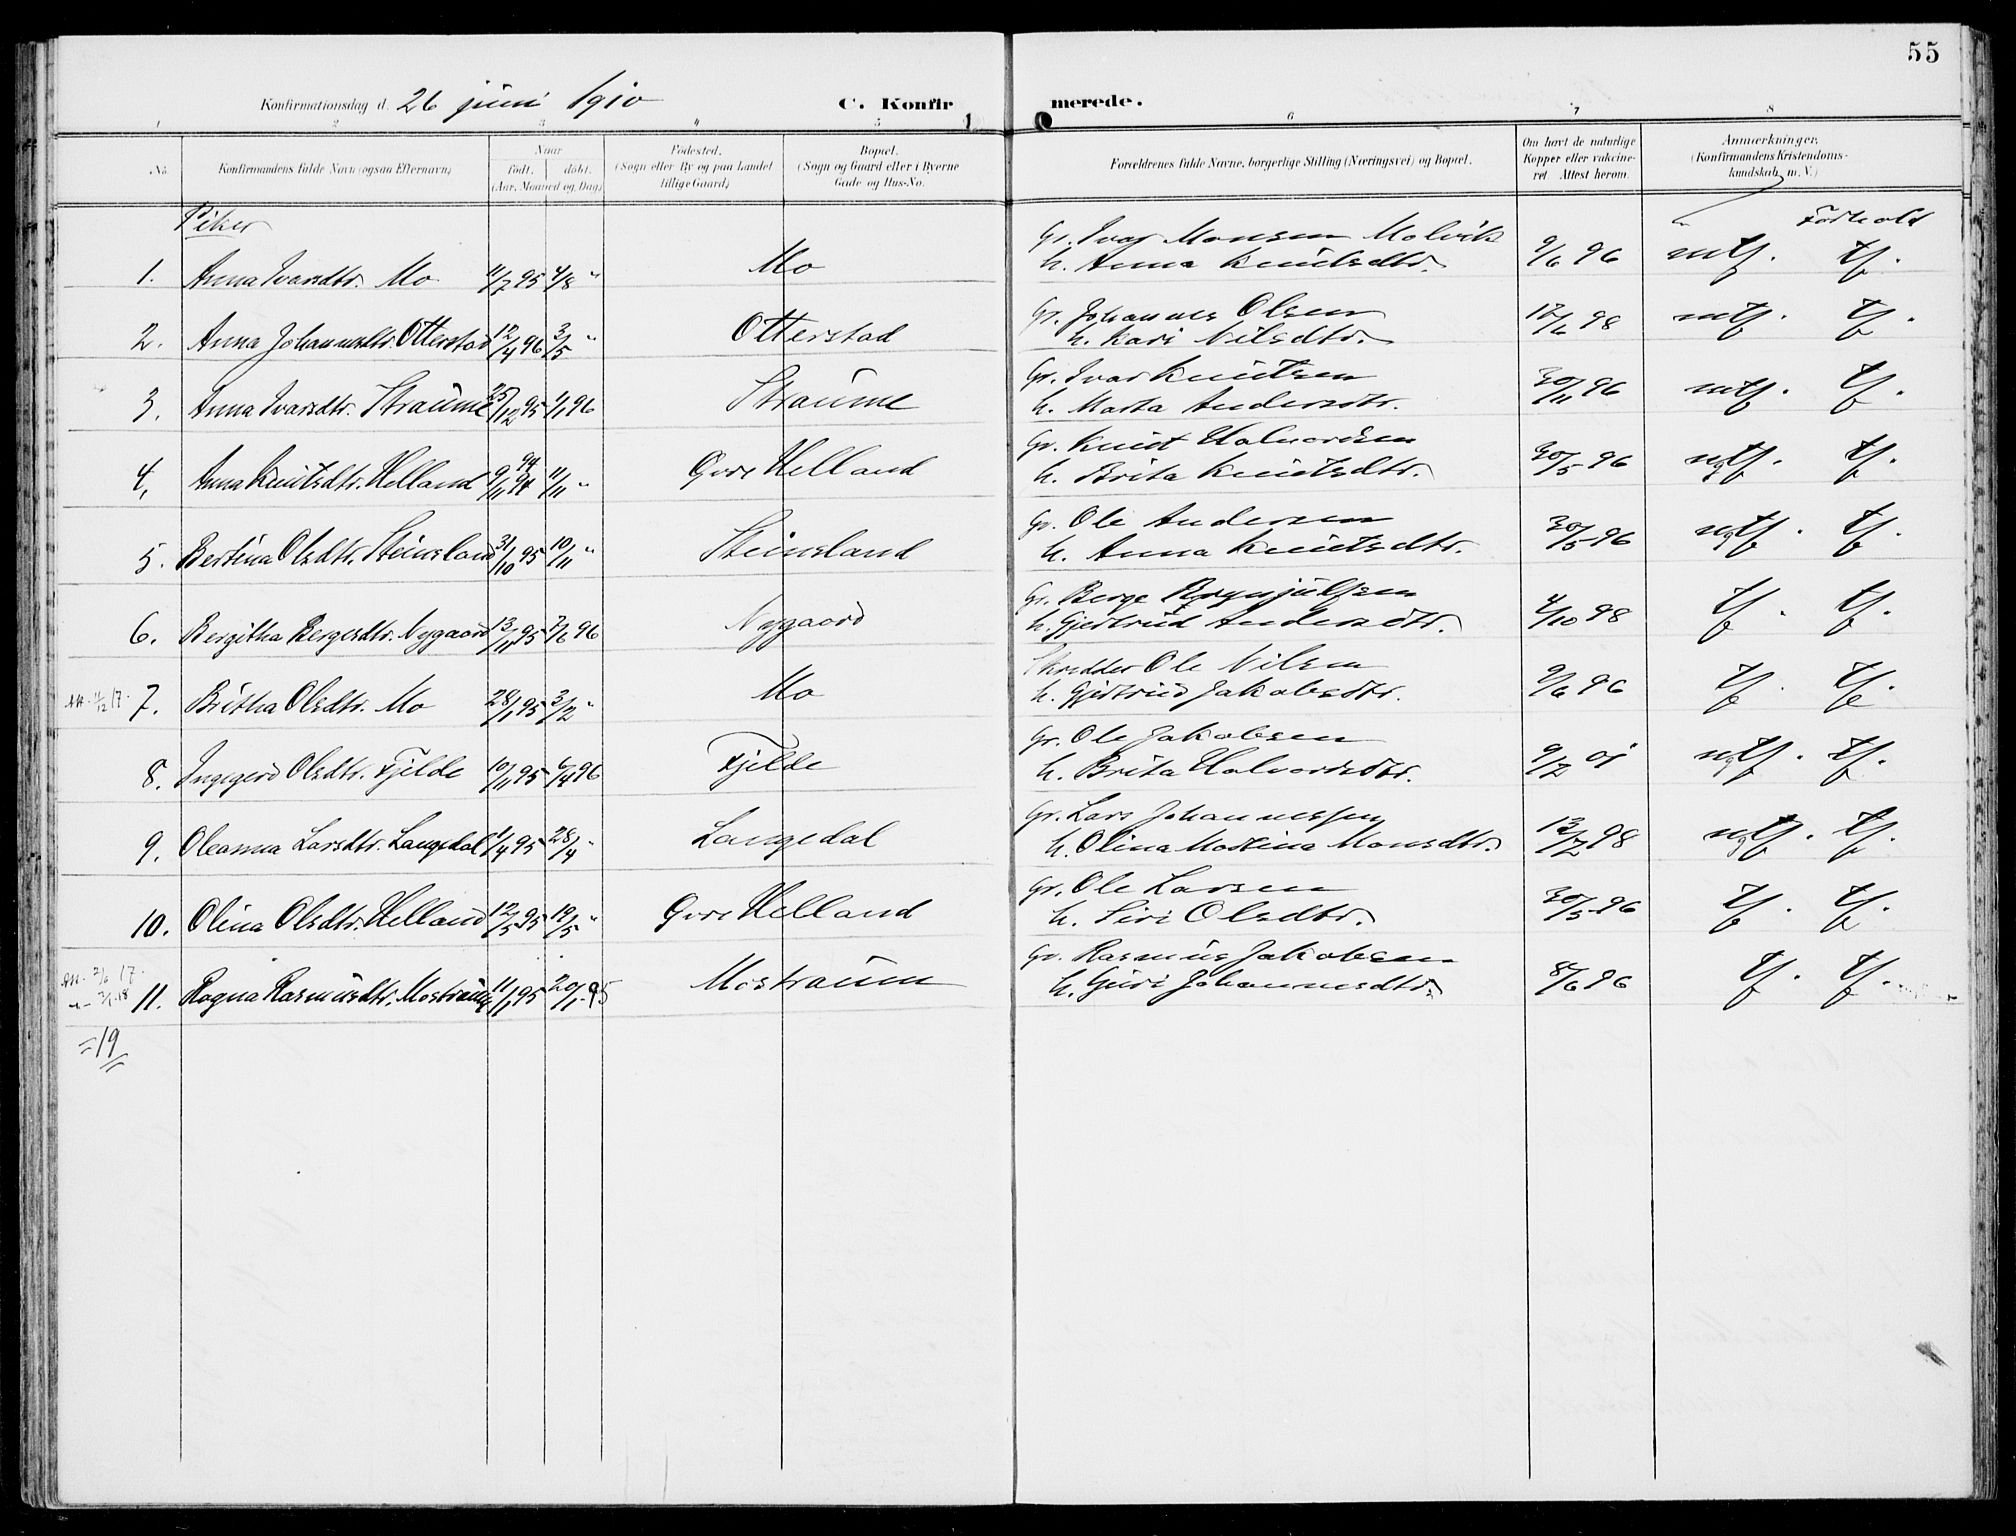 55
Konfirmationsdag d. 26 juni 1910 C. Konfirmerede.
1 2 3 4 5 6 7 8
No. Konfirmandens fulde Navn (ogsaa Efternavn) Naar födt. döbt. (Aar, Maaned og Dag) Födested. (Sogn eller By og paa Landet tillige Gaard) Bopæl. (Sogn og Gaard eller i Byerne Gade og Hus-No. Forældrenes fulde Navne, borgerlige Stilling (Næringsvei) og Bopæl. Om havt de naturlige Kopper eller vakcineret. Attest herom. Anmærkninger. (Konfirmandens Kristendomskundskab, m. V.)
Piker Forhold
Gr. Ivar Monsen Molvik
1. Anna Ivarsdtr. Mo 11/7 95 4/8 " Mo h. Anna Knutsdtr. 9/6 96 mtf. tf.
Gr. Johannes Olsen
2. Anna Johannesdtr. Otterstad 12/4 96 3/5 " Otterstad h. Kari Nilsdtr. 12/6 98 mtf. tf.
Gr. Ivar Knutsen
3. Anna Ivarsdtr. Straume 25/12 95 1/1 96 Straume h. Marta Andersdtr. 30/11 96 mtf. tf.
Gr. Knut Halvorsen
4. Anna Knutsdtr. Helland 9/11 94 11/11 " Øvre Helland h. Brita Knutsdtr. 30/5 96 ngtf. tf.
Gr. Ole Andersen
5. Bertina Olsdtr. Steinsland 31/10 95 10/11 " Steinsland h. Anna Knutsdtr. 30/5 96 ngtf. tf.
Gr. Berge Brynjulfsen
6. Bergitha Bergesdtr. Nygaard 13/11 95 7/6 96 Nygaard h. Gjertrud Andersdtr. 4/10 98 tf. tf.
Skredder Ole Nilsen
Att. 11/12 17. 7. Britha Olsdtr. Mo 28/1 95 3/2 " Mo h. Gjertrud Jakobsdtr. 9/6 96 tf. tf.
Gr. Ole Jakobsen
8. Ingegerd Olsdtr. Fjelde 10/11 95 6/4 96 Fjelde h. Brita Halvorsdtr. 9/2 01 ngtf. tf.
Gr. Lars Johannessen
9. Oleanna Larsdtr. Langedal 1/4 95 28/4 " Langedal h. Olina Martina Monsdtr. 13/2 98 ngtf. tf.
Gr. Ole Larsen
10. Olina Olsdtr. Helland 12/5 95 19/5 " Øvre Helland h. Siri Olsdtr. 30/5 96 tf. tf.
Gr. Rasmus Jakobsen
11. Ragna Rasmusdtr. Mostraum 11/1 95 20/1 95 Mostraum h. Guri Johannesdtr. 8/6 96 tf. tf.
=19